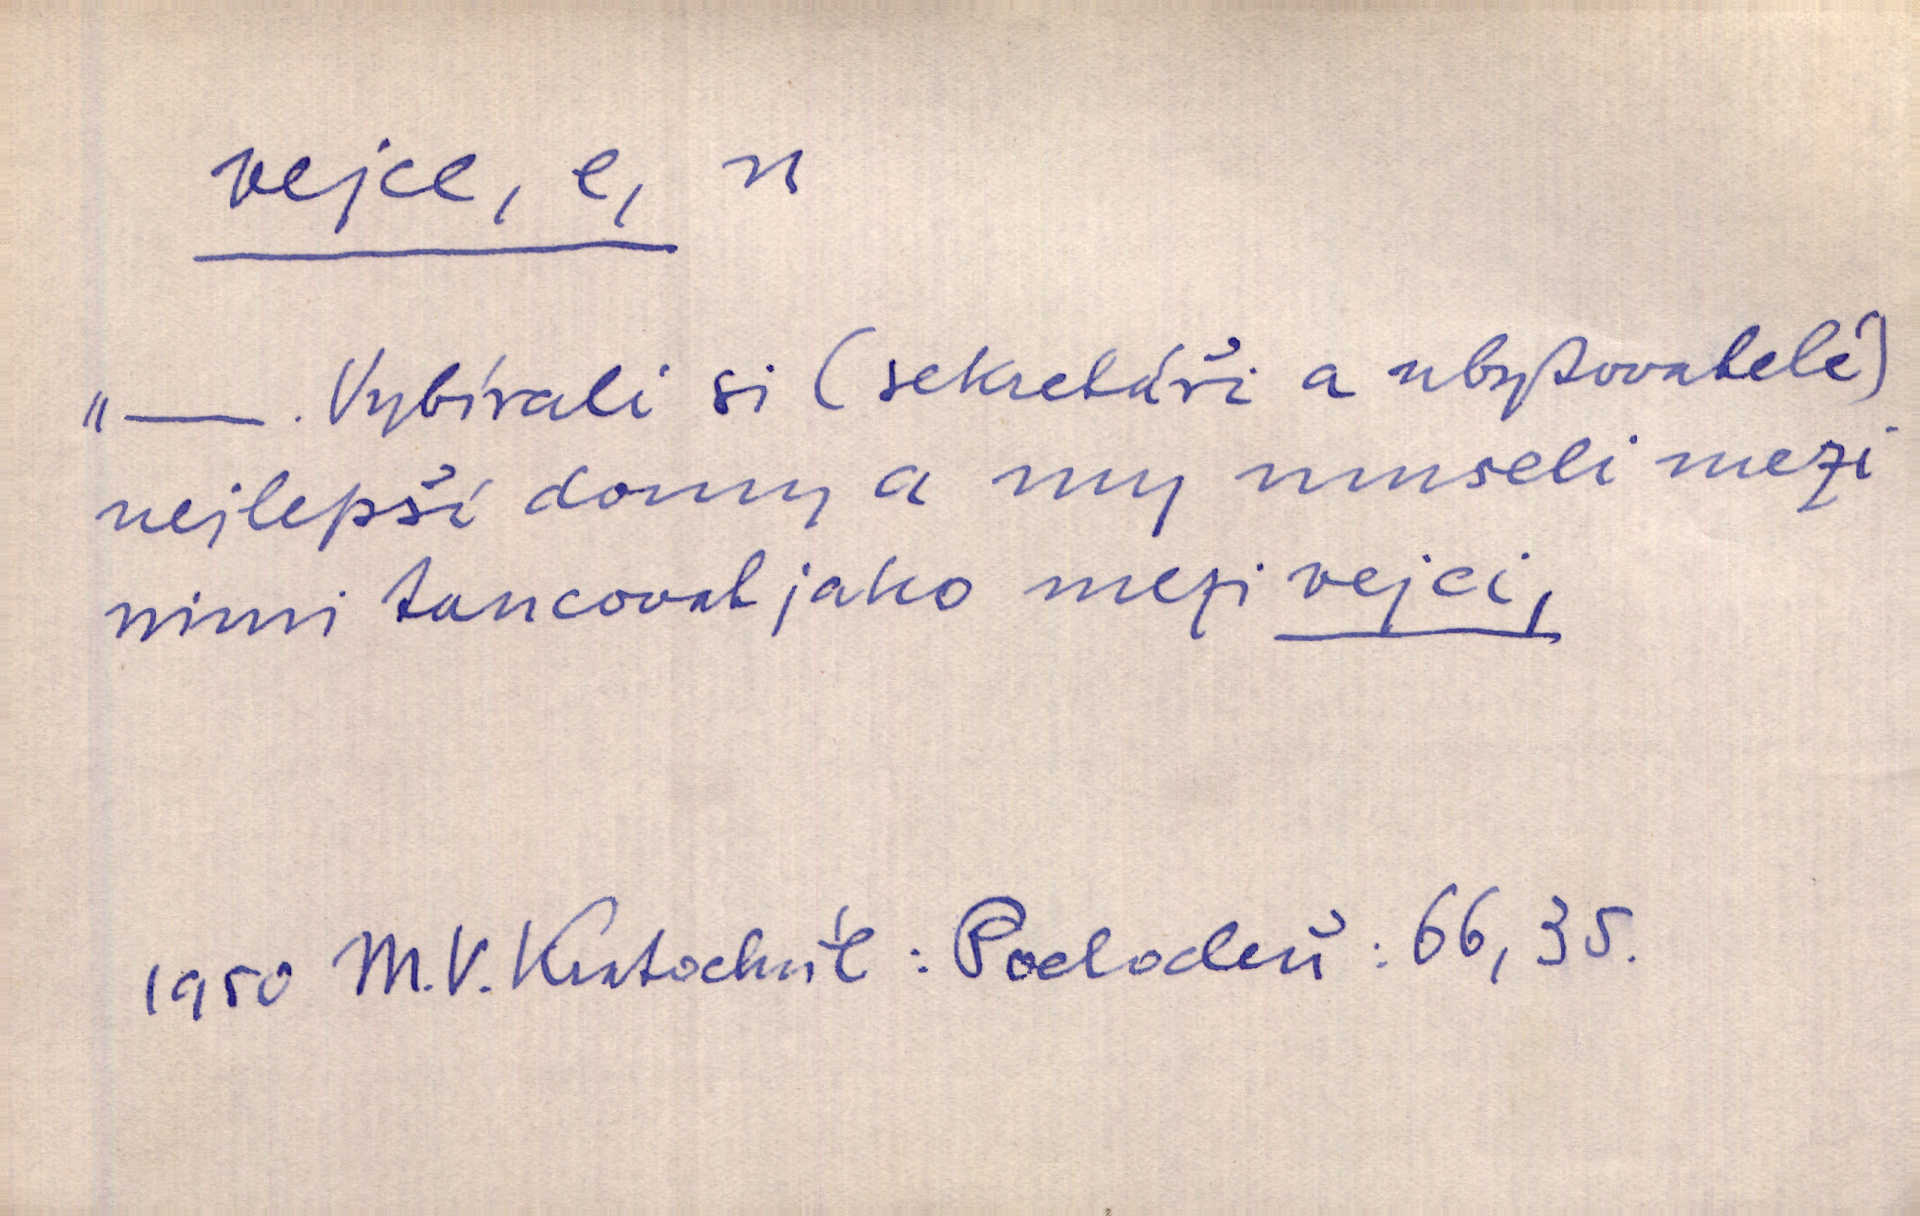 vejce, e, n
"—. Vybírali si (sekretáři a ubytovatelé)
nejlepší domy a my museli mezi
nimi tancovat jako mezi vejci,
1950 M.V. Kratochvíl : Pochodeň : 66, 35.